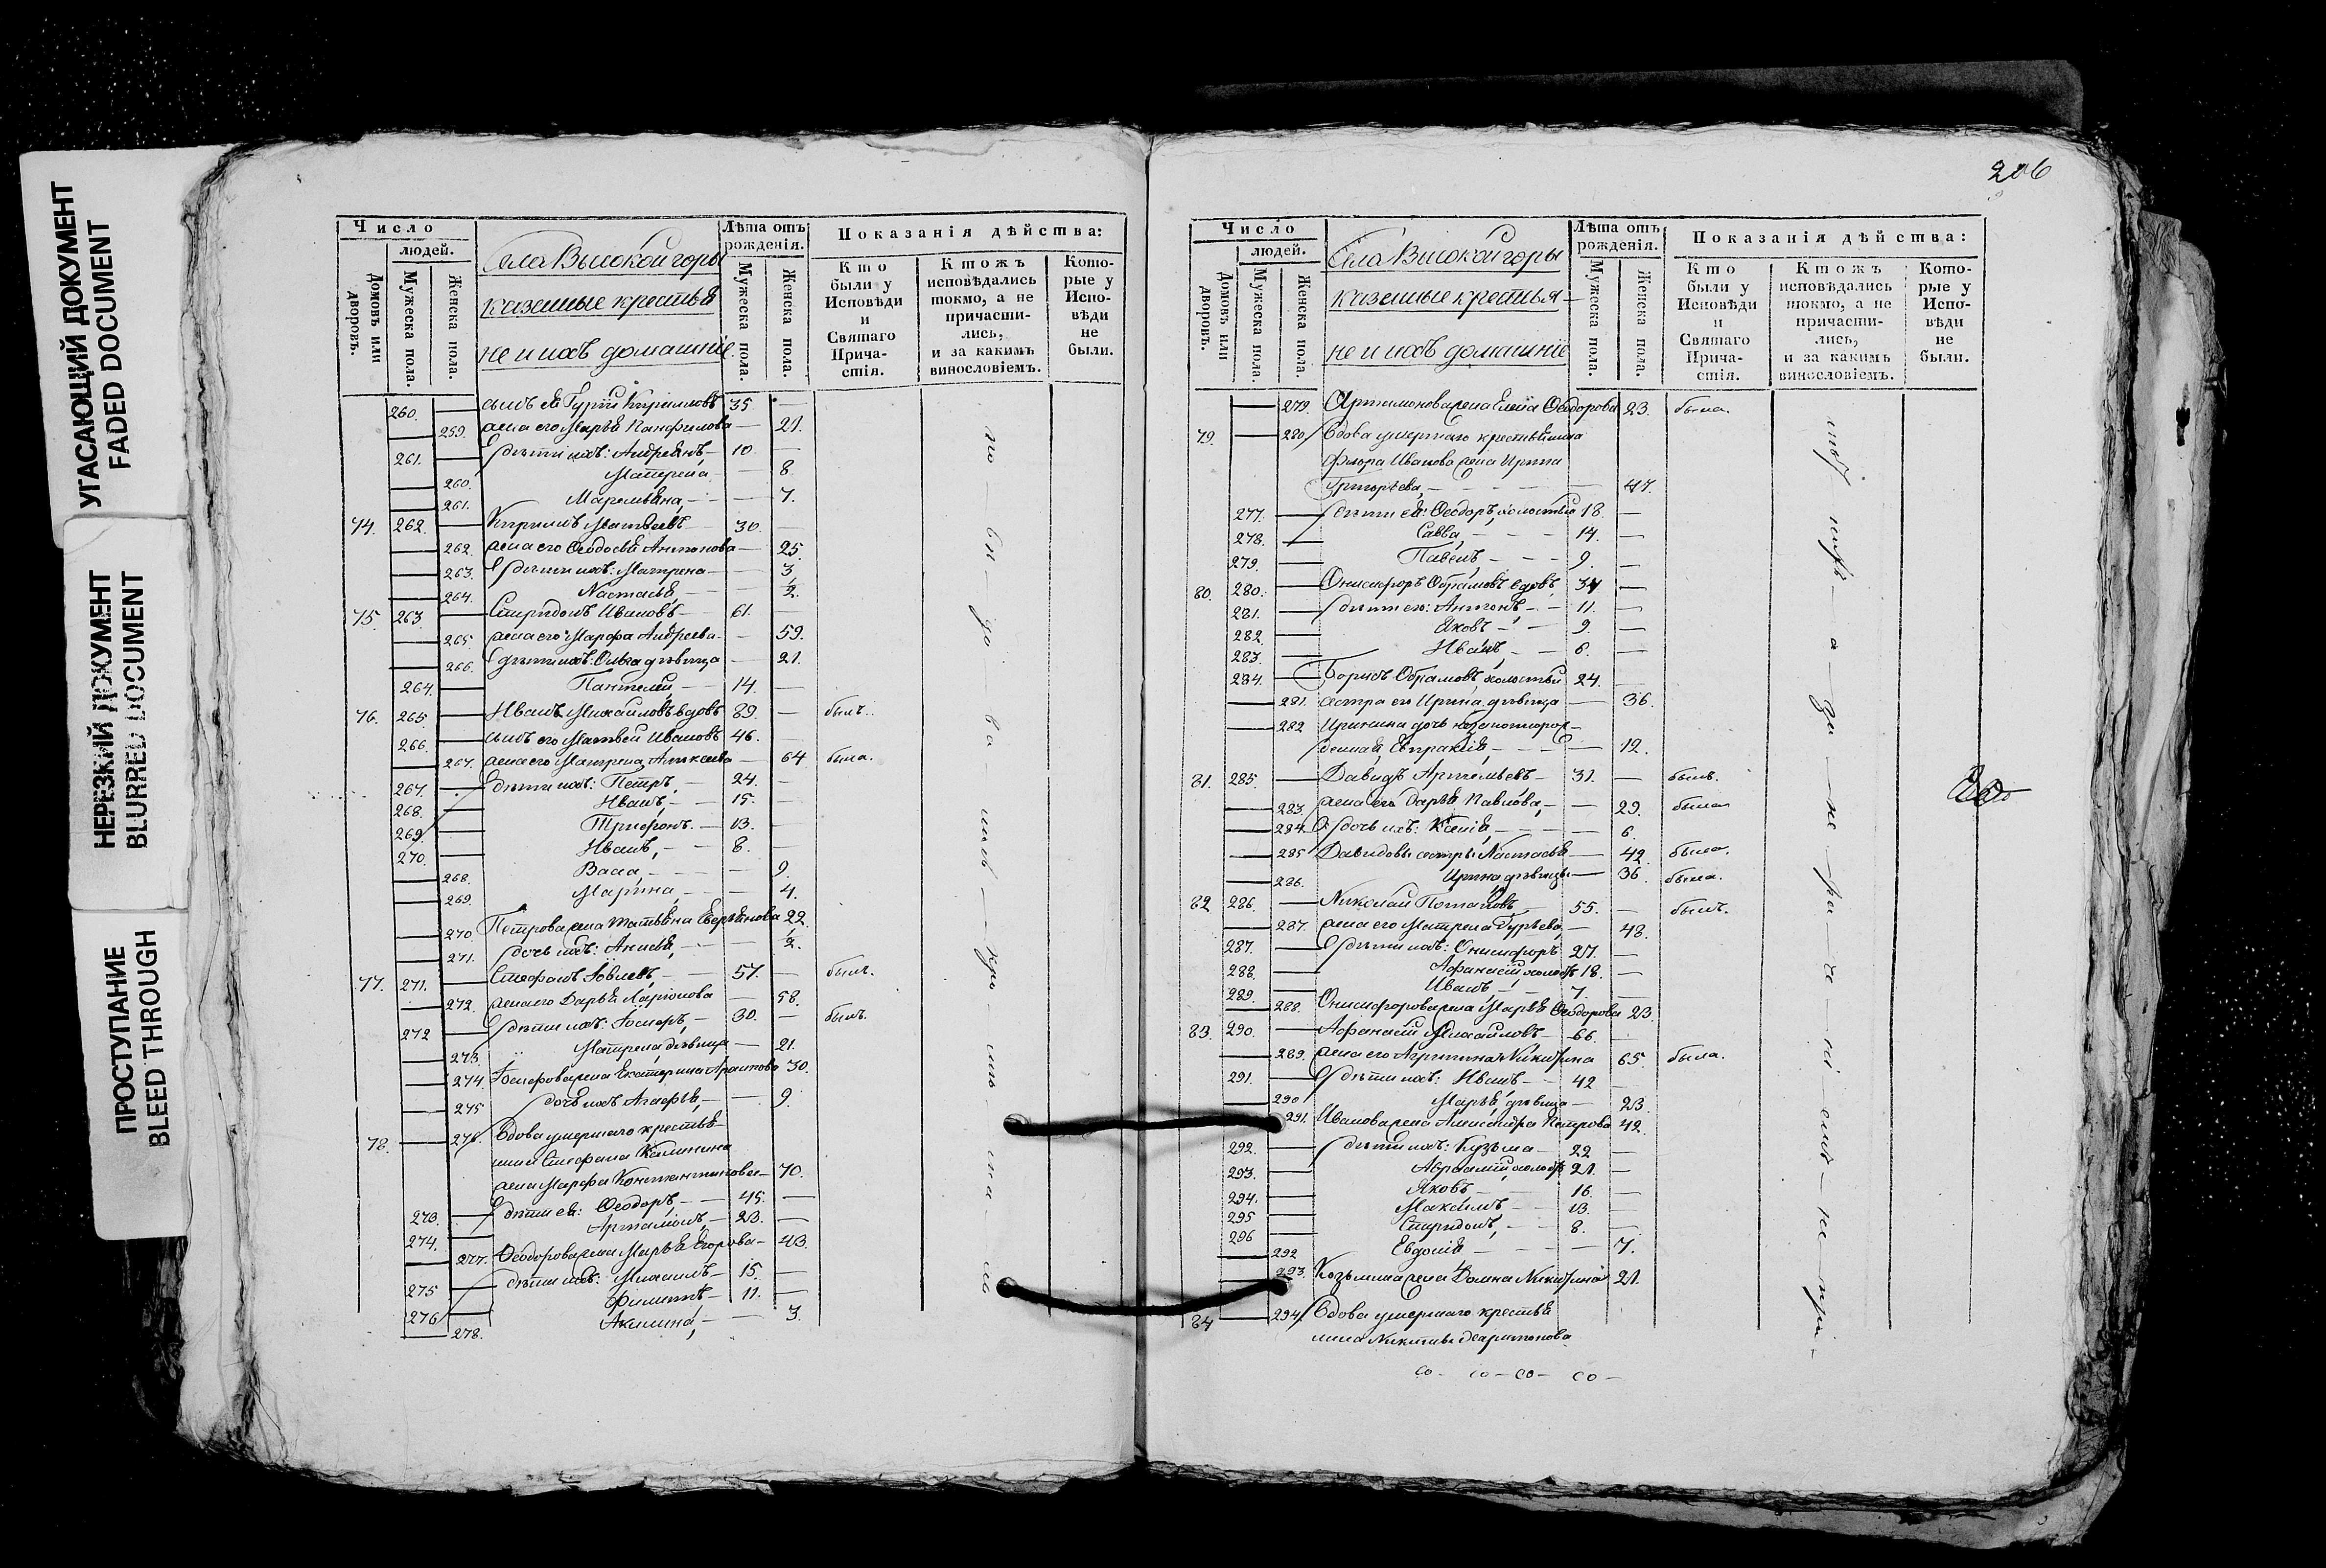 УГАСАЮЩИЙ ДОКУМЕНТ
FADED DOCUMENT
НЕРЕЗКИЙ ДОКУМЕНТ
BLURRED DOCUMENT
ПРОСТУПАНИЕ
BLEED THROUGH
Число
людей.
Домовъ или дворовъ.
Мужеска пола.
Женска пола.
Села Высокой горы
казенные крестья
не и ихъ домашніе
Лѣта отъ рожденія.
Мужеска пола.
Женска пола.
Показанія дѣйства:
Кто были у Исповѣди и Святаго Причастія.
Ктожъ исповѣдались токмо, а не причастились, и за какимъ винословіемъ.
Которые у Исповѣди не были.
260. сынъ ея Гурій Кириловъ 35
259. жена его Марья Панфилова 21.
261. дѣти ихъ: Андреянъ, 10.
260. Матрена 8
261. Маремьяна, 7.
74. 262. Кирилъ Матвеевъ 30.
262. жена его Ѳеодосья Антонова 25.
263. дѣти ихъ: Матрена 3,
264. Настасья, 2.
75. 263. Спиридонъ Ивановъ 61.
265. жена его Марфа Андреева 59.
266. дѣти ихъ: Ольга дѣвица 21.
264. Пантелей, 14.
76. 265. Иванъ Михаиловъ вдовъ 89. былъ.
266. сынъ его Матвей Ивановъ 46.
267. жена его Матрена Алексеева 64 была.
267. дѣти ихъ: Петръ, 24.
268. Иванъ, 15.
269. Трифонъ. 13.
270. Иванъ, 8.
268. Васса, 9.
269. Марина, 4.
270. Петрова жена Татьяна Аверьянова 22.
271. дочь ихъ: Анисья, 2.
77. 271. Стефанъ Іовлевъ, 57. былъ.
272. жена его Дарья Ларіонова 58.
272 дѣти ихъ: Іосифъ, 30. былъ.
273. Матрена дѣвица 21.
274. Іосифова жена Екатерина 30.
275 дочь ихъ Агафья, 9.
78. 276. Вдова умершаго крестья
нина Стефана Калинина
жена Марфа Константинова 70.
273. дѣти ея: Ѳеодоръ, 45.
274. Артамонъ, 23.
277. Ѳеодорова жена Марья Егорова 43.
275 дѣти ихъ: Михаилъ 15.
276 Филиппъ 11.
278. Акилина, 3.
206
Число
людей.
Домовъ или дворовъ.
Мужеска пола.
Женска пола.
Села Высокой горы
казенные крестья-
не и ихъ домашніе
Лѣта отъ рожденія.
Мужеска пола.
Женска пола.
Показанія дѣйства:
Кто были у Исповѣди и Святаго Причастія.
Ктожъ исповѣдались токмо, а не причастились, и за какимъ винословіемъ.
Которые у Исповѣди не были.
279. Артамонова жена Ѳеодорова 23. была.
79. 280 Вдова умершаго крестьянина
Флора Иванова жена Ирина
Григорьева, 47.
277. дѣти ея: Ѳеодоръ, холостый 18.
278. Савва, 14.
279. Павелъ, 9.
80. 280. Онисифоръ Обрамовъ вдовъ, 34
281. дѣти его: Антонъ 11.
282. Яковъ 9.
283. Иванъ, 6.
284. Борисъ Обрамовъ холостый 24.
281. сестра его Ирина дѣвица 36.
282 Иринина дочь незаконнорож-
денная, Евпраксія, 12.
81. 285. Давидъ Артемьевъ 31. былъ.
283. жена его Дарья Павлова, 29. была
284. дочь ихъ: Ксенія, 6.
285 Давидовы сестры Настасья 42. была.
286. Ирина дѣвицы 36. была.
82 286. Николай Потаповъ 55. былъ.
287. жена его Матрена Гурьева, 48.
287. дѣти ихъ: Онисифоръ 27.
288. Афанасій, холостъ 18.
289. Иванъ, 7.
288. Онисифорова жена Марья Ѳеодорова 23.
83. 290. Афанасій Михаиловъ 66.
289. жена его Агрипина Никитина 65. была.
291. дѣти ихъ: Иванъ 42
290 Марья, дѣвица 23
291. Иванова жена Александра Петрова 42.
292. дѣти ихъ: Кузьма 22
293. Авраамій, холостъ 21.
294. Яковъ 16.
295 Максимъ 13.
296 Спиридонъ, 8.
292 Евдокія 7.
293. Козьмина жена Домна Никитина 21.
84 294 Вдова умершаго крестья
нина Никиты Харитонова
со- со- со- со-